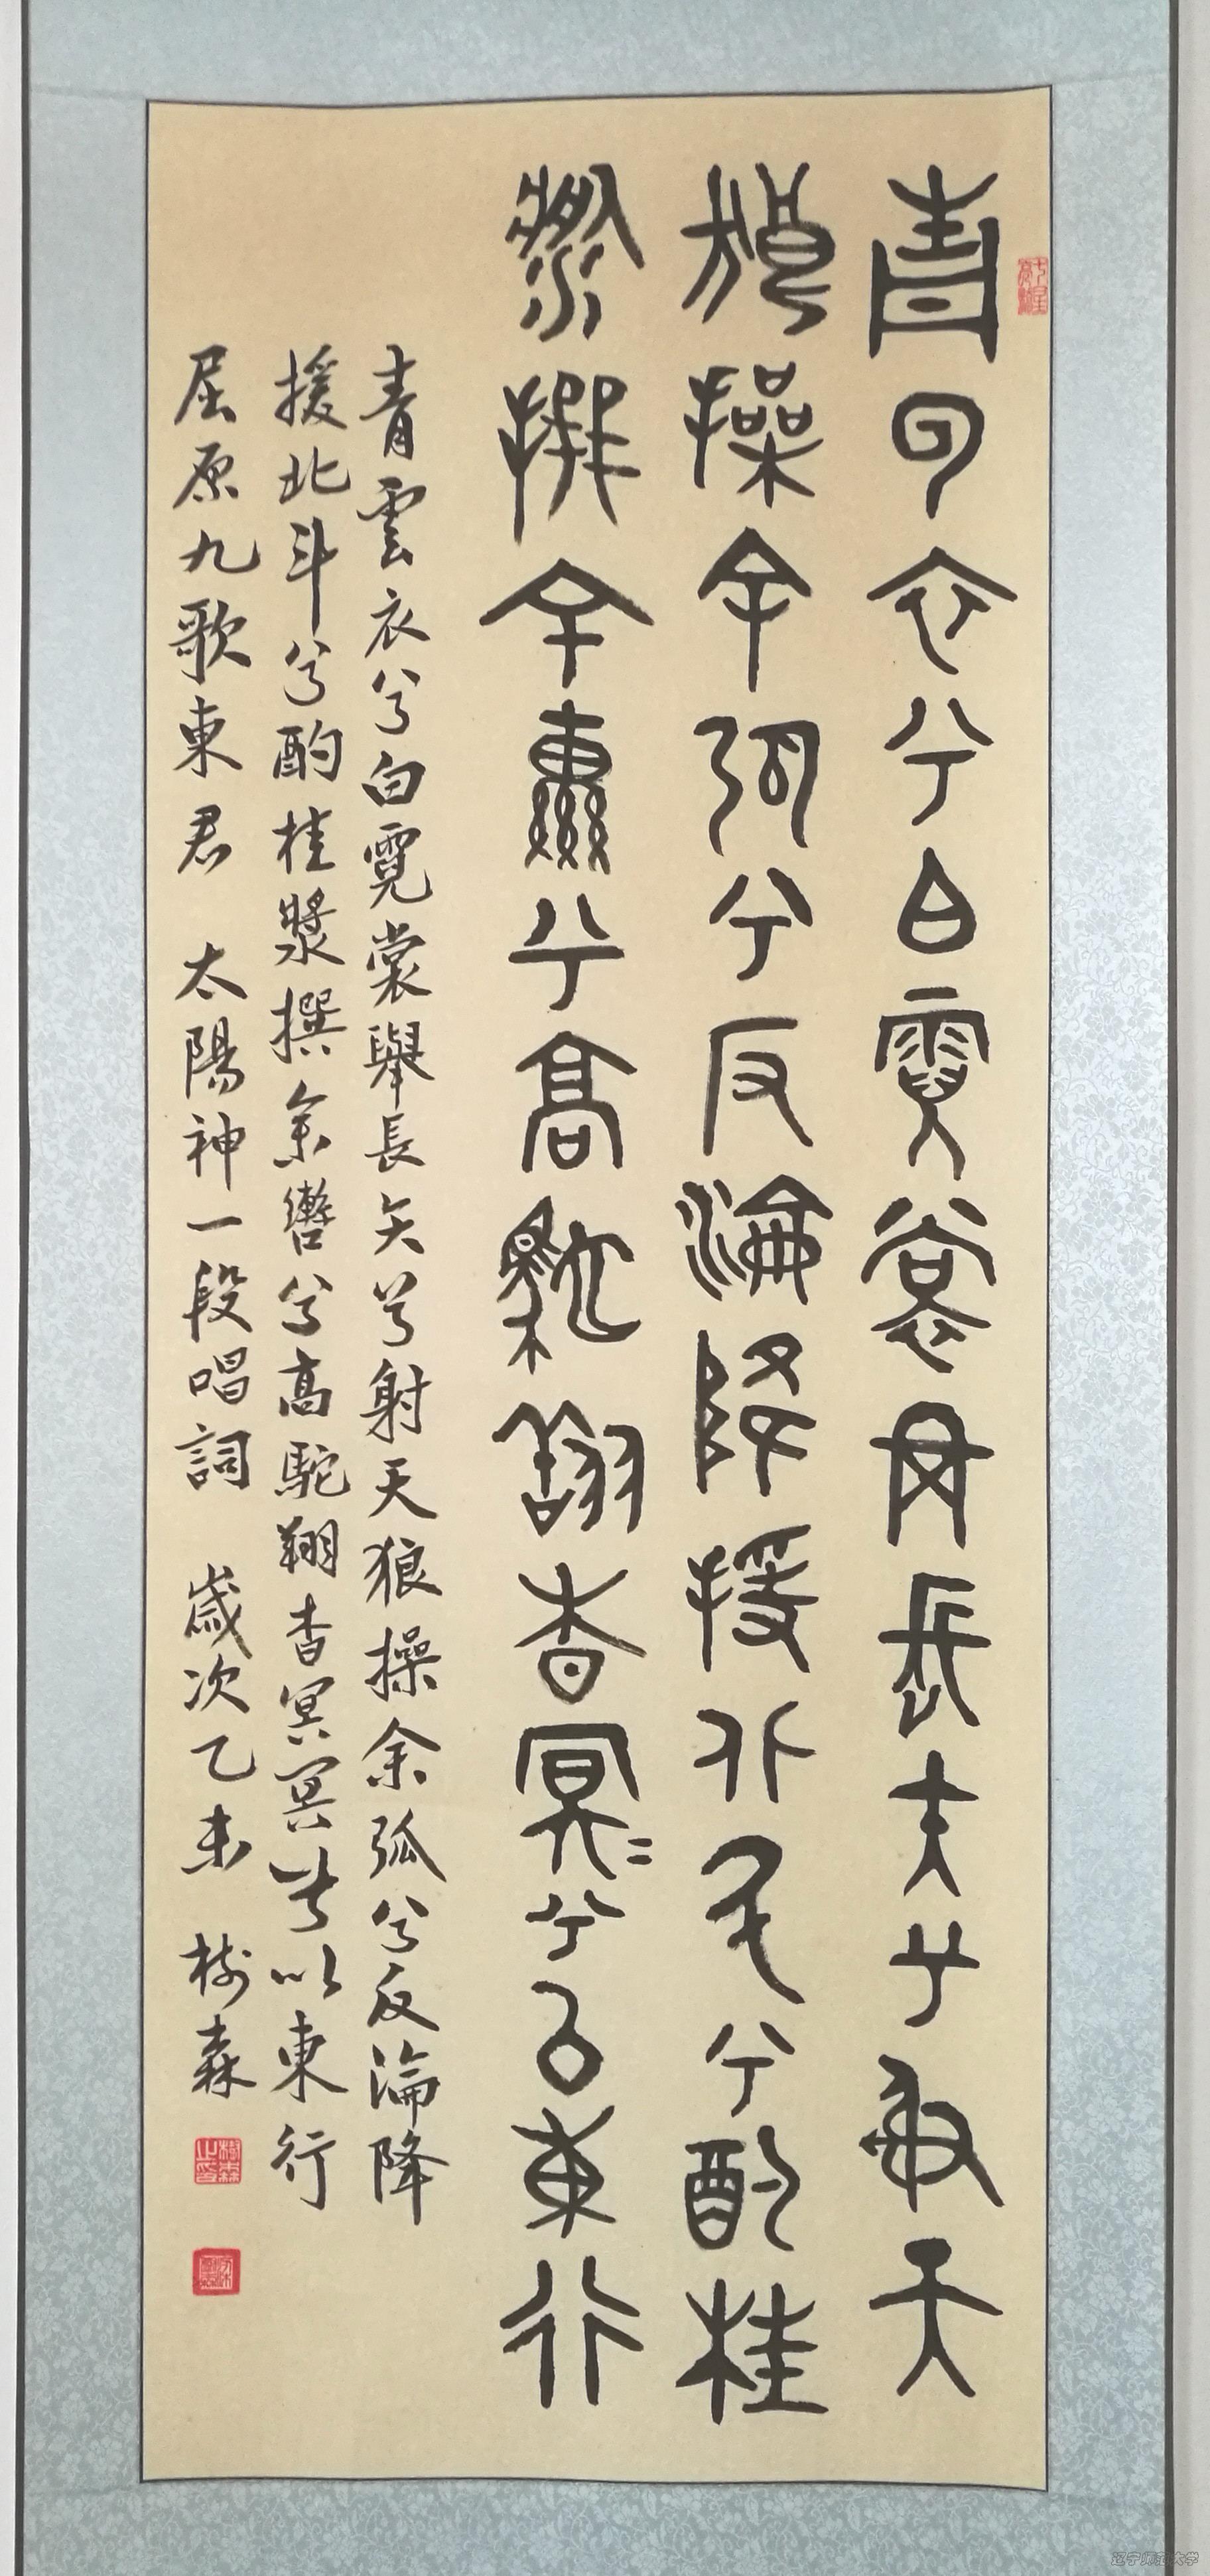 青云衣兮白霓裳舉長矢兮射天
狼操余弧兮反淪降援北斗兮酌桂
漿撰余轡兮高駝翔杳冥〻兮以東行
青雲衣兮白霓裳舉長矢兮射天狼操余弧兮反淪降
援北斗兮酌桂漿撰余轡兮高駝翔杳冥冥兮以東行
屈原九歌東君 太陽神一段唱詞 歲次乙未 樹森
樹森之印
辽宁师范大学